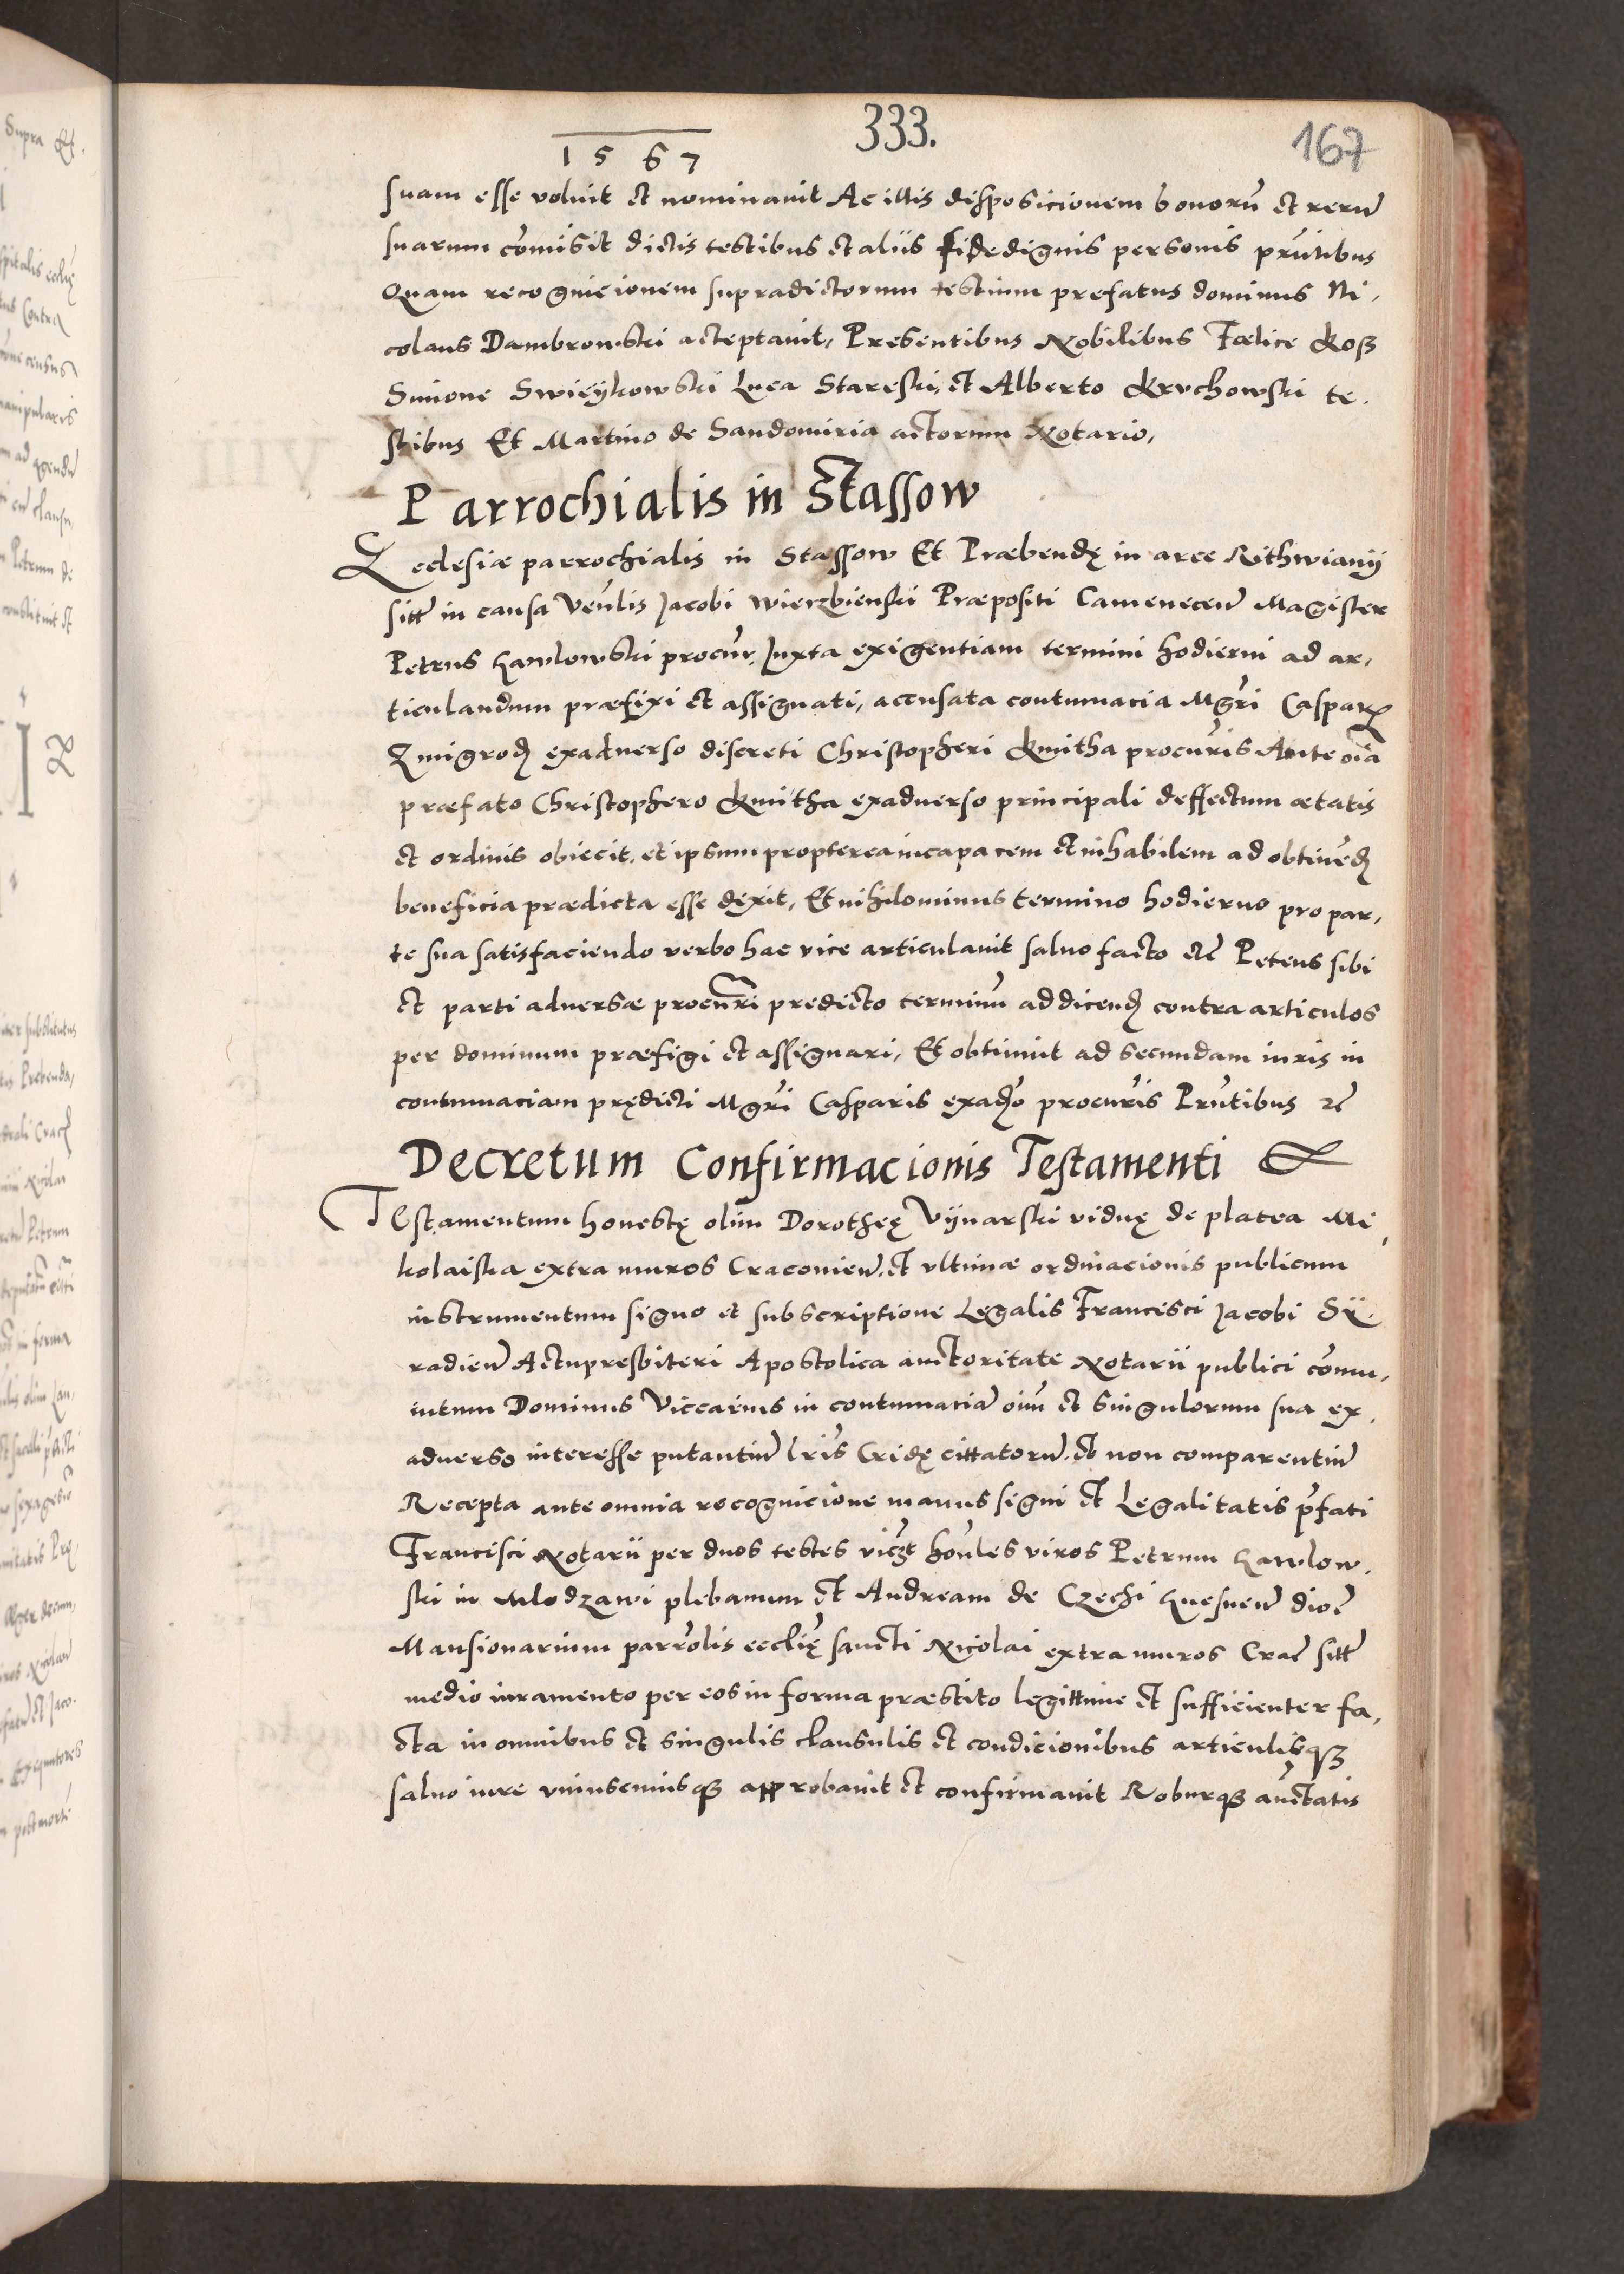 333.
167
1567
suam esse voluit et nominauit Ac illis dispositionem bonorū et rerum̄
suarum com̄isit dictis testibus et aliis fidedignis personis pn̄tibus
Quam recognicionem supradictorum testium prefatus dominus Ni,
colaus Dambrowski acceptauit, Presentibus Nobilibus Fœlice Koß
Simone Swieÿkowski Luca Stareski, et Alberto Kruchowski te,
stibus Et Martino de Sandomiria actorum Notario,
Parrochialis in Stassow
Ecclesiæ parrochialis in Stassow Et Præbendę in arce Rithwianÿ
sitt̄ in causa Ven̄lis Jacobi Wierzbienski Præpositi Camenecen̄ Magister
Petrus Gawlowski procur̄, Juxta exigentiam termini hodierni ad ar,
ticulandum præfixi et assignati, accusata contumacia Mgr̄i Caspar̄
Zmigrod̄ exaduerso discreti Christopheri Kmitha procur̄is Ante oīa
præfato Christophero Kmitha exaduerso principali deffectum ætatis
et ordinis obiecit, et ipsum propterea incapacem et inhabilem ad obtinēd̄
beneficia prædicta esse dixit, Et nihilominus termino hodierno pro par,
te sua satisfaciendo verbo hac vice articulauit saluo facto etc̄ Petens sibi
et parti aduersæ procur̄ri predicto terminū ad dicend̄ contra articulos
per dominum præfigi et assignari, Et obtinuit ad secundam iuris in
contumaciam prędicti Mgr̄i Casparis exad̄so procur̄is Prn̄tibus etc̄
Decretum Confirmacionis Testamenti
Testamentum honestę olim Dorotheę Vÿnarski viduę de platea Mi,
kolaiska extra muros Cracouien̄, et vltimæ ordinacionis publicum
instrumentum signo et subscriptione Legalis Francisci Jacobi Sÿ,
radien̄ Actupresbiteri Apostolica auctoritate Notarii publici com̄u,
nitum Dominus Viccarius in contumaciā oīm et singulorum sua ex,
aduerso interesse putantiū lr̄is Cridę cittatorum̄, et non comparentiū
Recepta ante omnia recognicione manus signi et Legalitatis p̄fati
Francisci Notarii per duos testes viczt hon̄les viros Petrum Gawlow,
ski in Mlodzawi plebanum et Andream de Czechi Gnesnen̄ dioc̄
Mansionarium parr̄olis eccl̄ię sancti Nicolai extra muros Crac̄ sitt̄
medio iuramento per eos in forma præstito legittime et sufficienter fa,
cta in omnibus et singulis clausulis et condicionibus articulisqȝ
saluo iure vniuscuiusqȝ approbauit et confirmauit Roburqȝ auc̄tatis